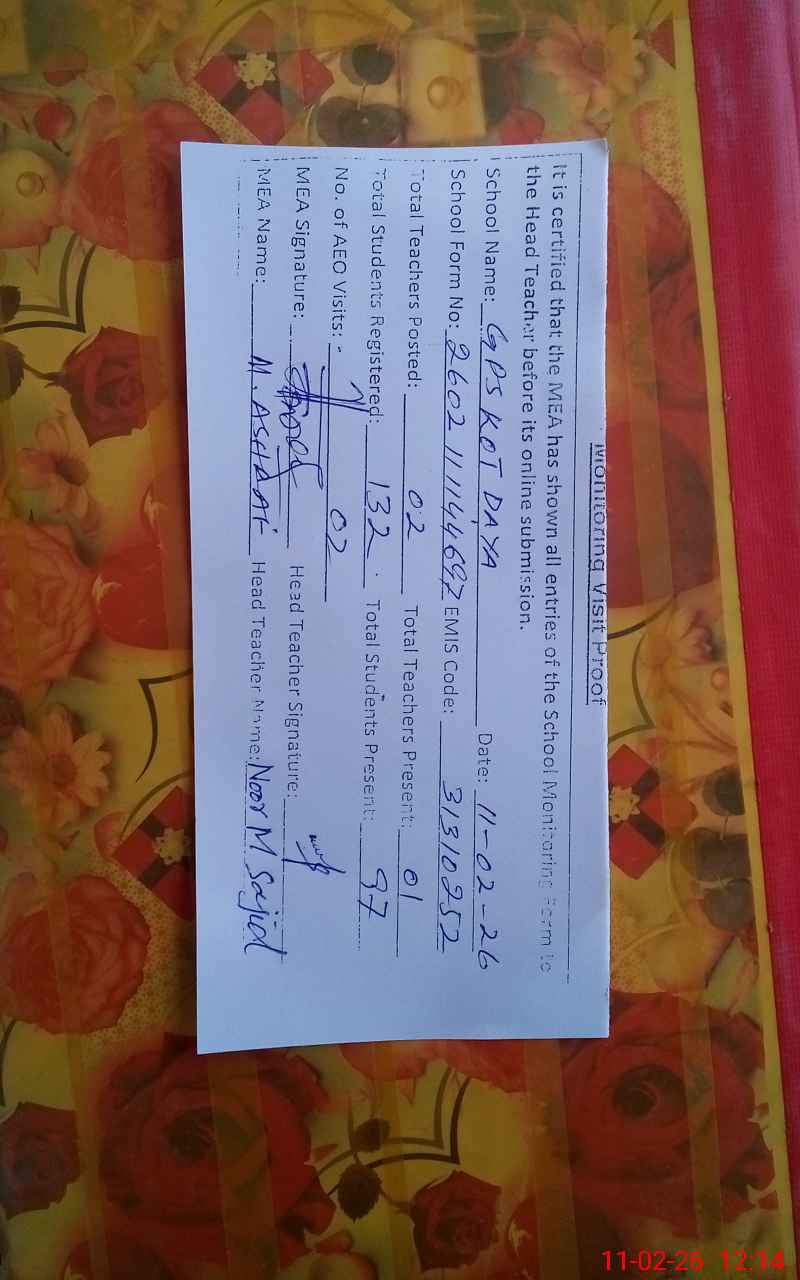 Monitoring Visit Proof
It is certified that the MEA has shown all entries of the School Monitoring Form to
the Head Teacher before its online submission.
School Name: GPS KOT DAYA Date: 11-02-26
School Form No: 2602111144697 EMIS Code: 31310252
Total Teachers Posted: 02 Total Teachers Present: 01
Total Students Registered: 132 Total Students Present: 97
No. of AEO Visits: - 02
MEA Signature: Head Teacher Signature:
MEA Name: M. ASHFAK Head Teacher Name: Noor M Sajid
11-02-26 12:14